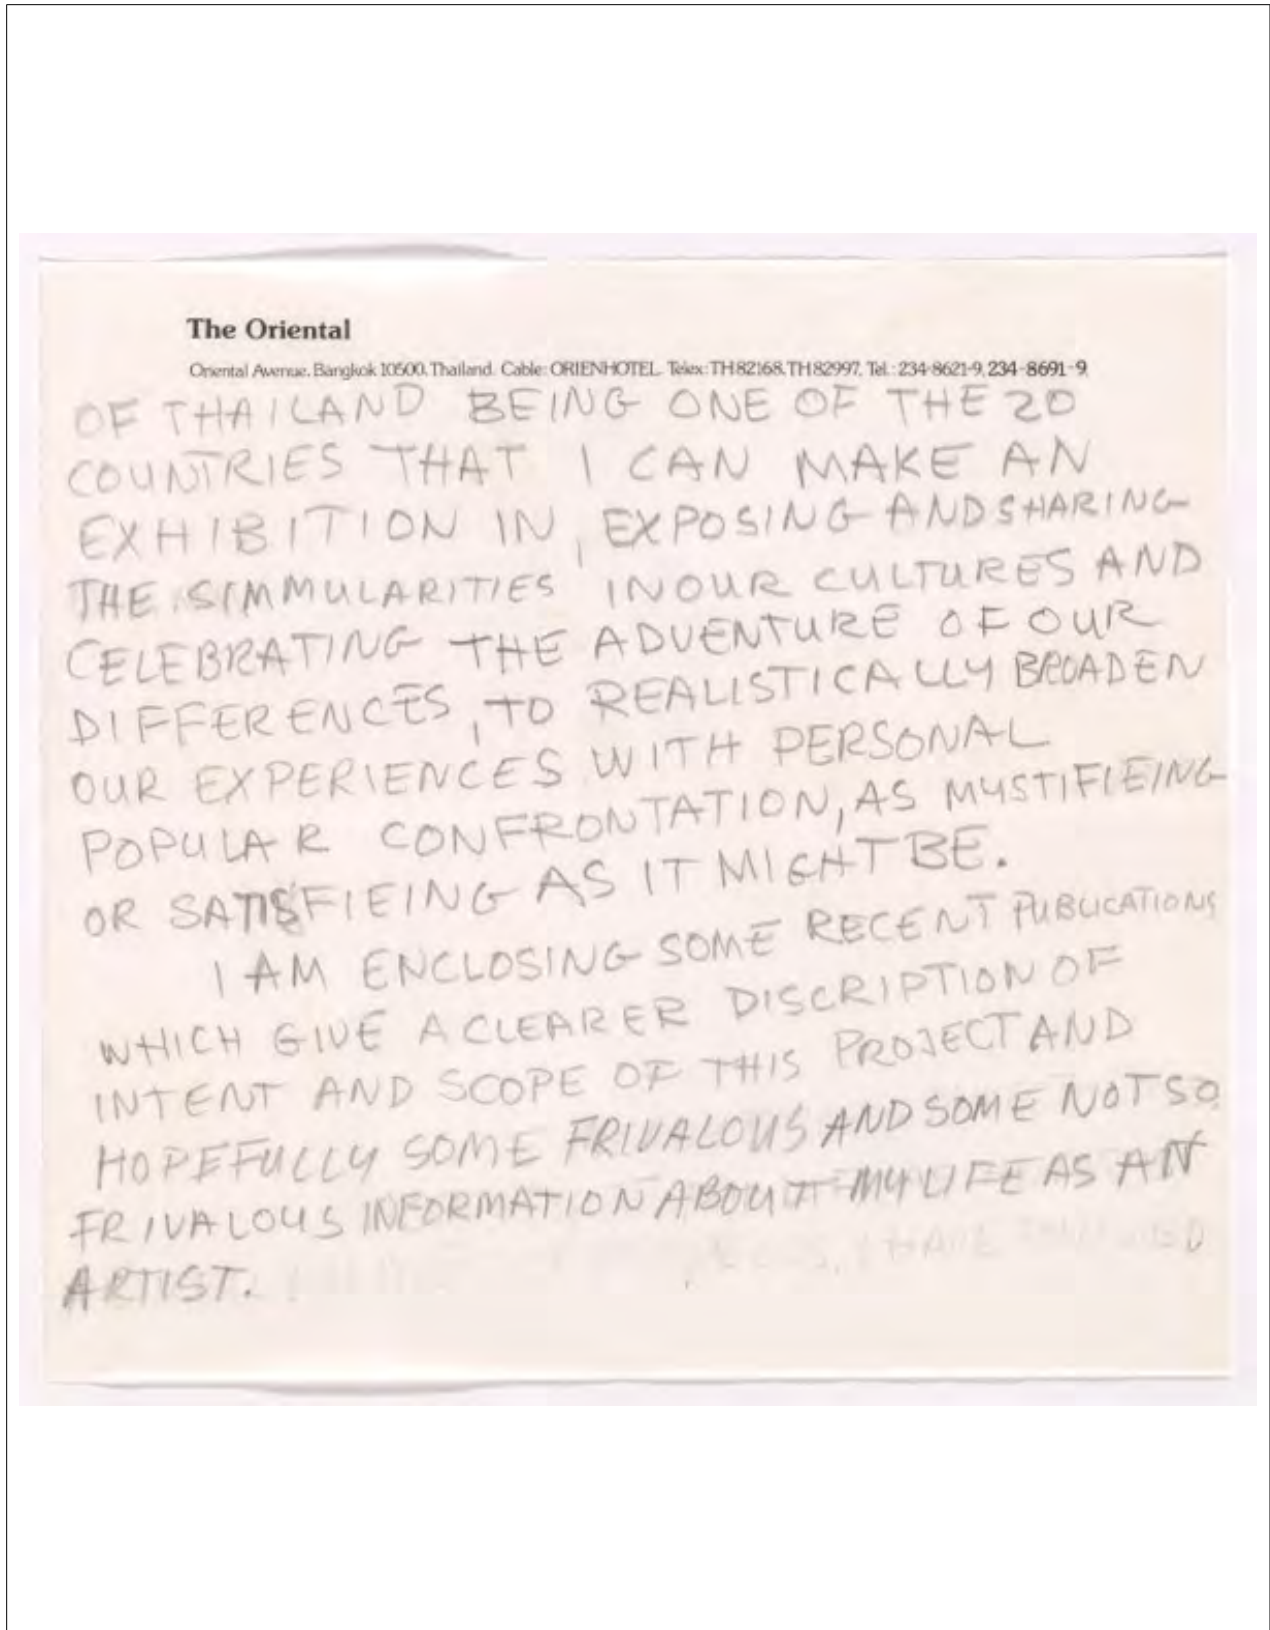 The Oriental
Oriental Avenue, Bangkok 10500, Thailand. Cable: ORIENHOTEL. Telex: TH 82168, TH 82997, Tel.: 234-8621-9, 234-8691-9,
OF THAILAND BEING ONE OF THE 20
COUNTRIES THAT I CAN MAKE AN
EXHIBITION IN, EXPOSING AND SHARING
THE SIMMULARITIES IN OUR CULTURES AND
CELEBRATING THE ADVENTURE OF OUR
DIFFERENCES, TO REALISTICALLY BROADEN
OUR EXPERIENCES WITH PERSONAL
POPULAR CONFRONTATION, AS MYSTIFIEING
OR SATISFIEING AS IT MIGHT BE.
I AM ENCLOSING SOME RECENT PUBLICATIONS
WHICH GIVE A CLEARER DISCRIPTION OF
INTENT AND SCOPE OF THIS PROJECT AND
HOPEFULLY SOME FRIVALOUS AND SOME NOT SO
FRIVALOUS INFORMATION ABOUT MY LIFE AS AN
ARTIST. I HAVE